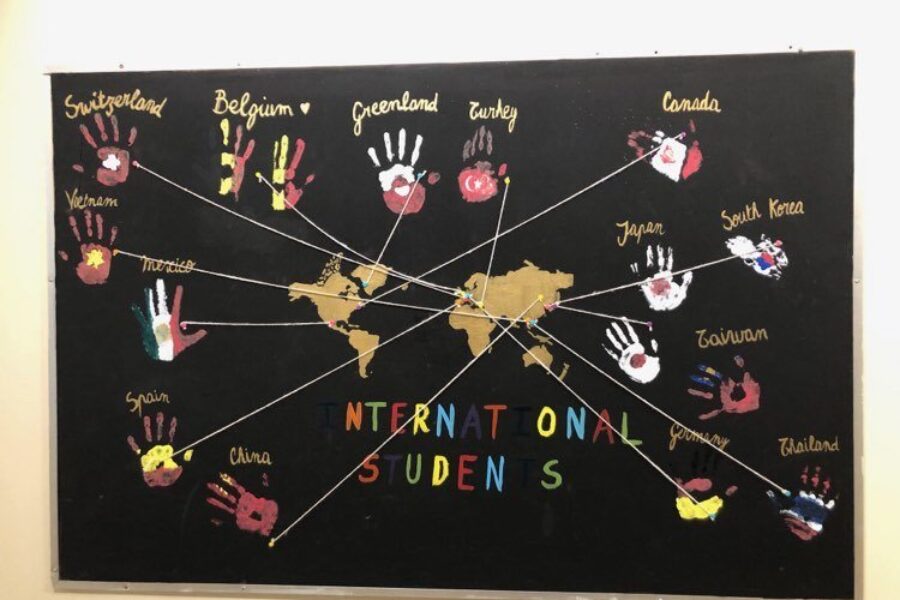 Switzerland
Belgium ♥
Greenland
Turkey
Canada
Vietnam
Mexico
Japan
South Korea
Taiwan
Spain
China
INTERNATIONAL
STUDENTS
Germany
Thailand